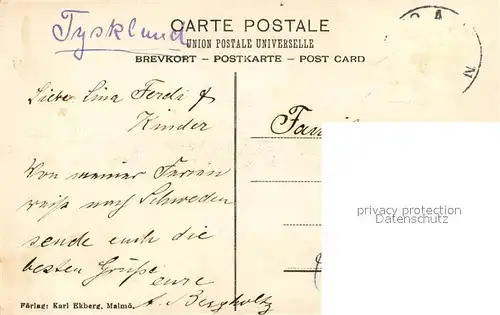 Tyskland
CARTE POSTALE
UNION POSTALE UNIVERSELLE
BREVKORT – POSTKARTE – POST CARD
Liebe Lina Ferdi &
Kinder
Von meiner Ferien
reise nach Schweden
sende euch die
besten Grüße
eure
A. Bergholtz
privacy protection
Datenschutz
Förlag: Karl Ekberg, Malmö.